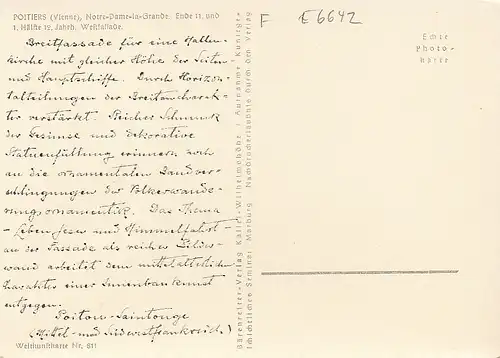 POITIERS (Vienne), Notre-Dame-la-Grande. Ende 11. und
1. Hälfte 12. Jahrh. Westfassade.
Breitfassade für eine Hallen-
kirche mit gleicher Höhe der Seiten-
und Hauptschiffe. Durch Horizon-
talteilungen der Breitencharak-
ter verstärkt. Reicher Schmuck
der Gesimse und dekorative
Statuenfüllung erinnern noch
an die ornamentalen Bandver-
schlingungen der Völkerwande-
rungsornamentik. Das Thema
- Leben Jesu und Himmelfahrt -
an der Fassade als reiche Bilder-
wand arbeitet dem mittelalterlichen
Charakter einer Innenbaukunst
entgegen.
Poitou-Saintonge
(Mittel- und Südwestfrankreich)
Weltkunstkarte Nr. 811
F E6642
Echte
Photo-
karte
Bärenreiter-Verlag Kassel-Wilhelmshöhe / Aufnahme Kunstge-
schichtliches Seminar Marburg Nachdruckerlaubnis durch den Verlag